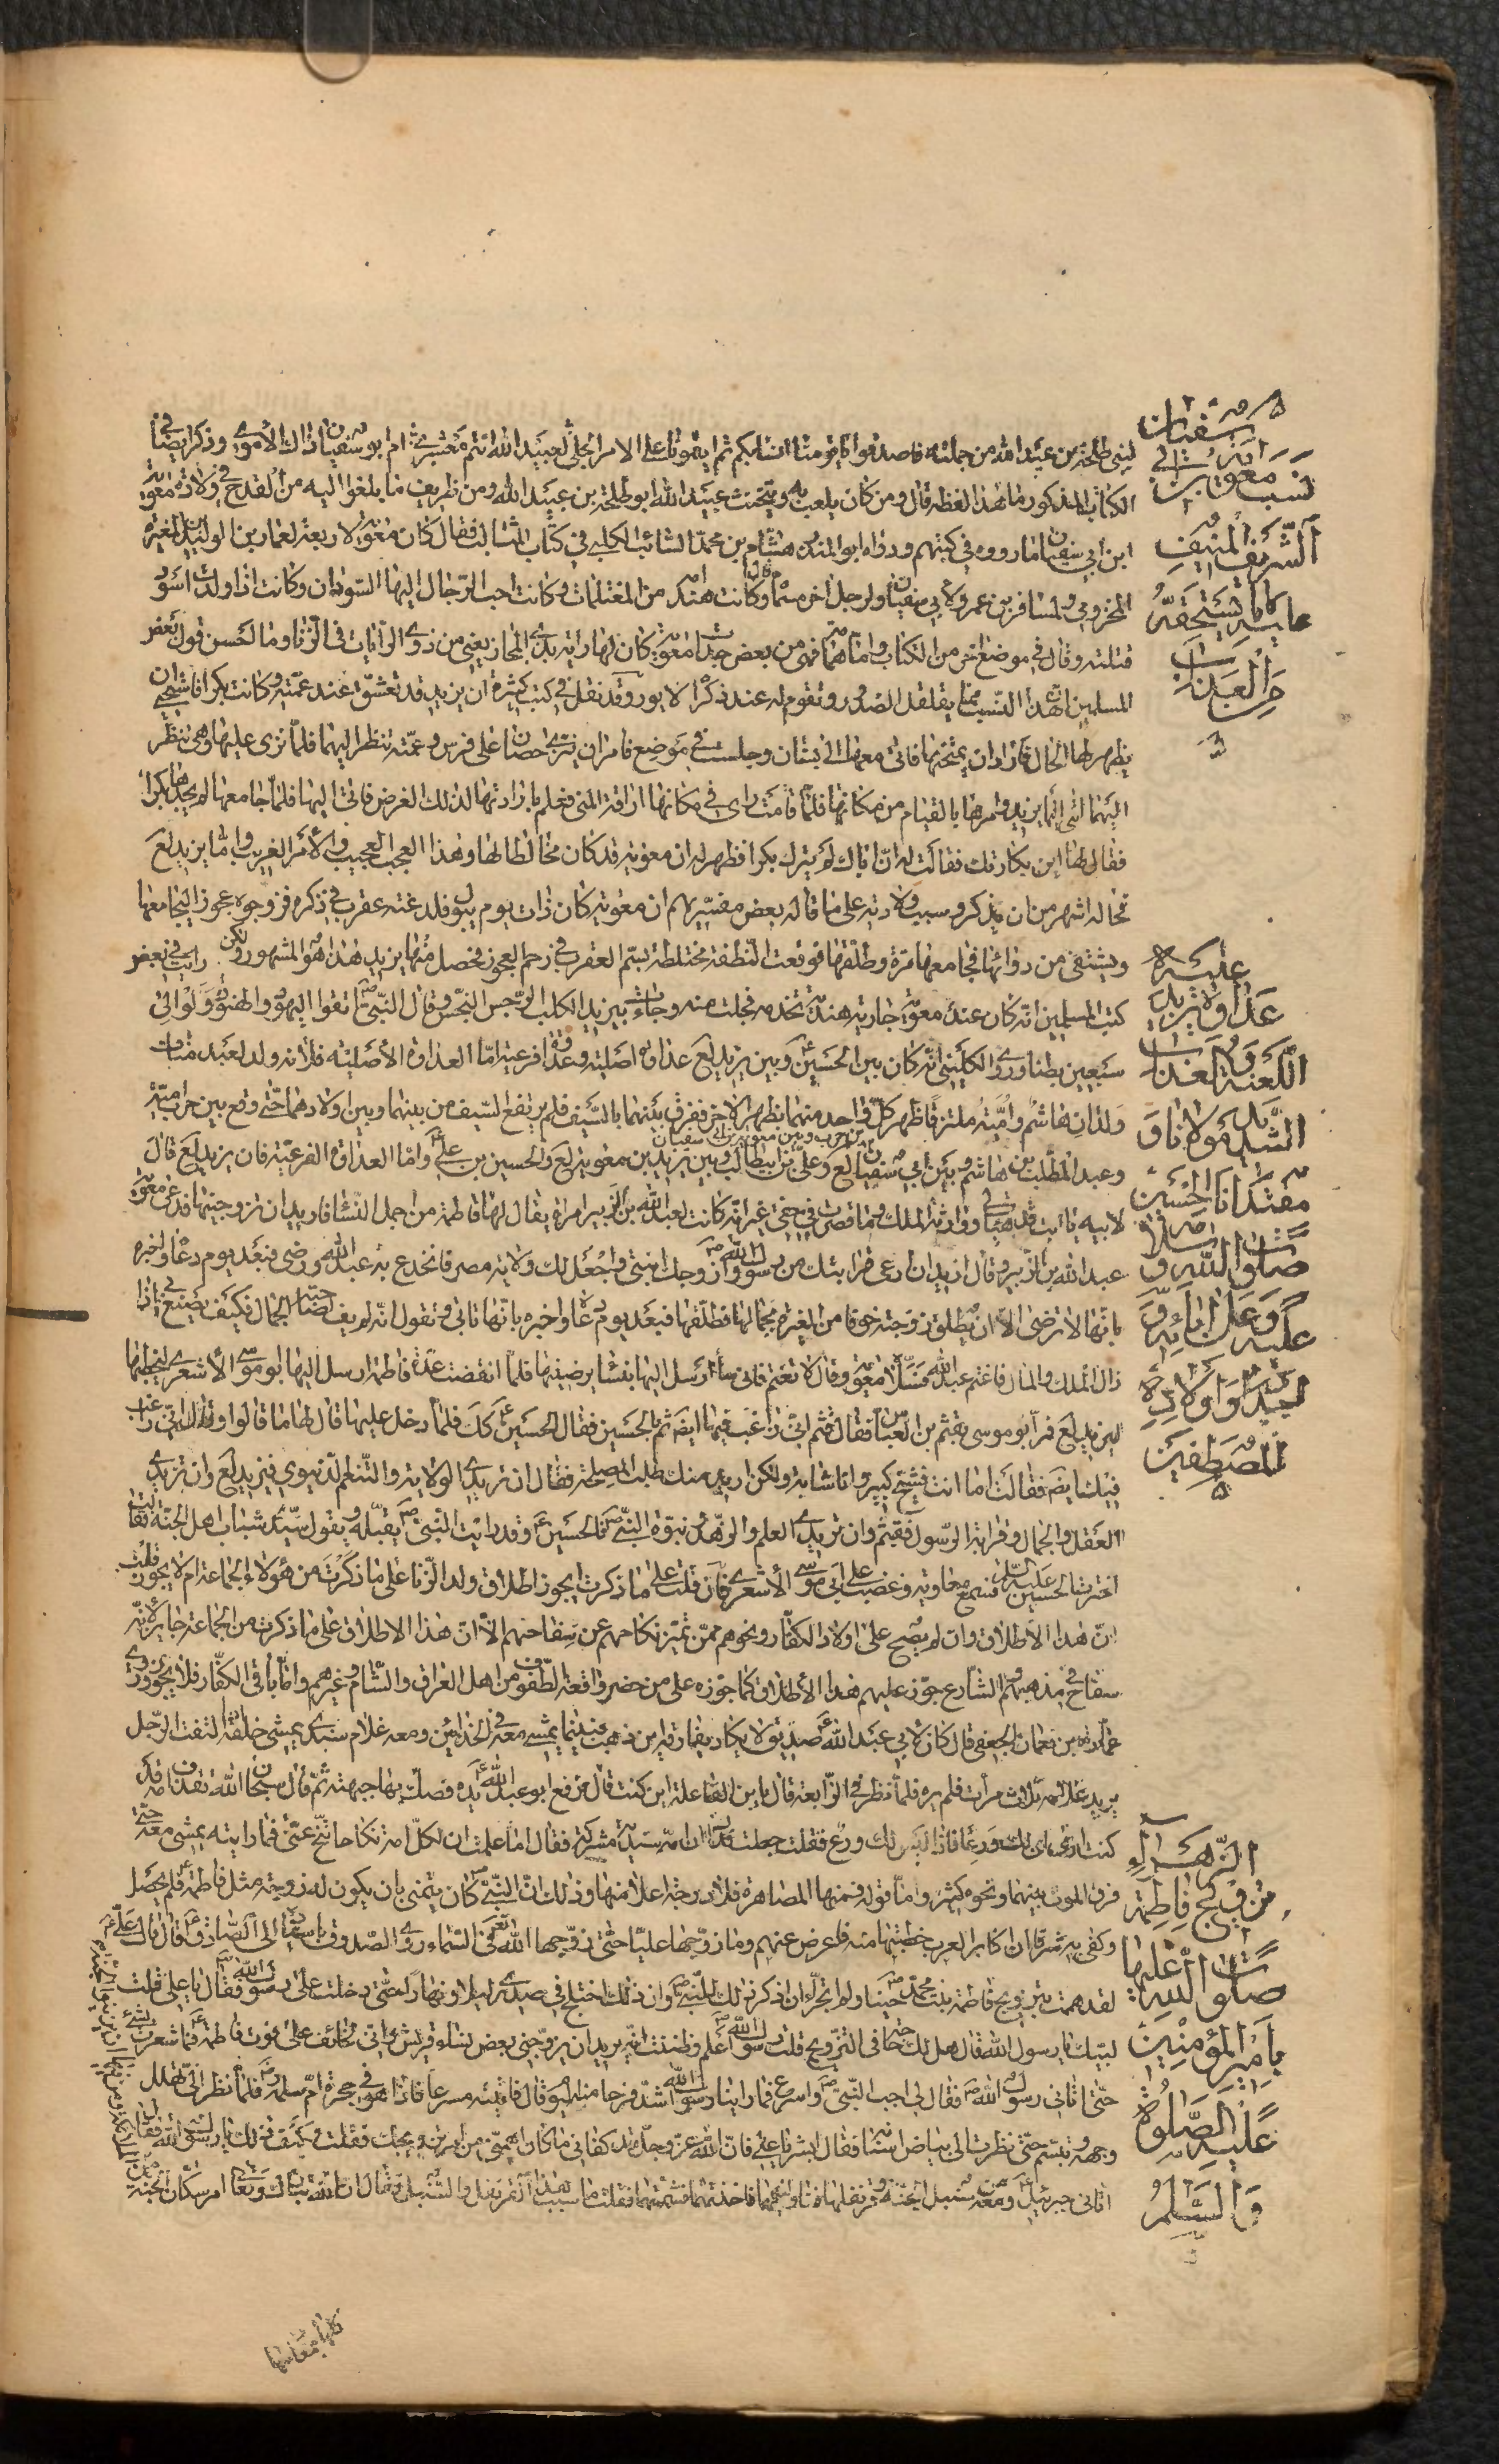 لبني طلحة بن عبيد الله من جملته فاصدقوا يا قومنا
الكتاب المذكور ما هذا لفظه قال ومن كان يلعب به ويتخنث عبيد الله ابو طلحة بن عبيد الله ومن ظريف ما بلغوا اليه من القدح في ولادة معوية
ابن ابي سفيان ما رووه في كتبهم ورواه ابو المنذر هشام بن محمد السائب الكلبي في كتاب المثالب فقال كان معوية لاربعة لعمارة بن الوليد بن المغيرة
المخزومي ولمسافر بن عمرو ولابي سفيان ولرجل اخر سماه قال وكانت هند امه من المغتلمات وكانت احب الرجال اليها السودان وكانت اذا ولدت اسود
قتلته وقال في موضع اخر من الكتاب واما حمامة فهي من بعض جدات معوية كان لها راية بذي المجاز يعني من ذوي الرايات في الزنا وما احسن قول بعض
المسلمين ان هذا النسب مما يقلقل الصدور وتقوم له عند ذكره الايور وقد نقل في كتب كثيرة ان يزيد قد تعشق عند عمته وكانت بكرا فاستحى ان
يظهر لها الحال فاراد ان يمتحنها فاتى معها الى بستان وجلست في موضع فامر ان ينزى حصانا على فرس وعمته تنظر اليهما فلما نزى عليها وهي تنظر
اليهما اتى اليها يزيد وامرها بالقيام من مكانها فلما قامت راى في مكانها اراقة المني فعلم بارادتها لذلك الغرض فاتى اليها فلما جامعها لم يجدها بكرا
فقال لها اين بكارتك فقالت له ان اباك لم يترك بكرا فظهر له ان معوية قد كان مخالطا لها وهذا العجب العجيب والامر الغريب واما يزيد لع
فحاله اشهر من ان يذكر وسبب ولادته على ما قاله بعض مفسريهم ان معوية كان ذات يوم يبول فلدغته عقرب في ذكره فزوجوه عجوزا ليجامعها
ويشتفي من دائها فجامعها مرة وطلقها فوقعت النطفة مختلطة بسم العقرب في رحم العجوز فحصل منها يزيد هذا هو المشهور ولكن رايت في بعض
كتب المسلمين انه كان عند معوية جارية هندية تخدمه فحملت منه وجاءت بيزيد الكلب الرجس النجس وقال النبي ص اتقوا اليهود والهنود ولو الى
سبعين بطنا وروى الكليني انه كان بين الحسين ع وبين يزيد لع عداوة اصلية وعداوة فرعية اما العداوة الاصلية فلانه ولد لعبد مناف
ولدان هاشم وامية ملتزقا ظهر كل واحد منهما بظهر الاخر ففرق بينهما بالسيف فلم يرتفع السيف من بينهما وبين اولادهما حتى وقع بين حرب بن امية
وعبد المطلب بن هاشم وبين ابي سفيان لع بن حرب وبين معوية بن ابي سفيان وعلي بن ابيطالب وبين يزيد بن معوية لع والحسين بن علي ع واما العداوة الفرعية فان يزيد لع قال
لابيه يا ابت قد وراثة الملك وما قصرت في حقي غير انه كانت لعبد الله بن الزبير امراة يقال لها فاطمة من اجمل النساء فاريد ان تزوجنيها فدعى معوية
عبد الله بن الزبير وقال اريد ان ارعى قرابتك من رسول الله ص وازوجك ابنتي واجعل لك ولاية مصر فانخدع به عبد الله ورضي فبعد يوم دعاه واخبره
بانها لا ترضى الا ان يطلق زوجته خوفا من الغيرة بجمالها فطلقها فبعد يوم دعاه واخبره بانها تابى وتقول انه لم يف لصاحبة الجمال فكيف يصنع بي اذا
زال الملك والمال فاغتم عبد الله فسلاه معوية وقال لا تغتم فاني سأرسل اليها بنفسا يرضيها فلما انقضت عدة فاطمة ارسل اليها ابو موسى الاشعري ليخطبها
ليزيد لع فمر ابو موسى بقثم بن العباس فقال قثم اني راغب فيها ايضه ثم بالحسين فقال الحسين ع كك فلما دخل عليها قال لها ما قالوا وقال اني راغب
فيك ايضه فقالت اما انت فشيخ كبير وانا شابة ولكن اريد منك طلب المصلحة فقال ان تريدي الولاية والتنعم الدنيوي فيزيد لع وان تريدي
العقل والجمال وقرابة الرسول فقثم وان تريدي العلم والزهد وبنوة النبي ص فالحسين ع وقد رايت النبي ص يقبله ويقول سيد شباب اهل الجنة فقالت
اخترت الحسين عليه السلام فسمع معاوية وغضب على ابي موسى الاشعري فان قلت على ما ذكرت ايجوز اطلاق ولد الزنا على ما ذكرت من هؤلاء الجماعة ام لا يجوز قلت
ان هذا الاطلاق وان لم يصح على اولاد الكفار ونحوهم ممن تميز نكاحهم عن سفاحهم الا ان هذا الاطلاق على ما ذكرت من الجماعة جايز لانه
سفاح في مذهبهم والشارع جوز عليهم هذا الاطلاق كما جوزه على من حضر واقعة الطفوف من اهل العراق والشام وغيرهم واما باقي الكفار فلا يجوز روى
عمرو بن نعمان الجعفي قال كان لابي عبد الله ع صديق لا يكاد يفارقه اين ذهب فبينما يمشي معه في الحذائين ومعه غلام سندي يمشي خلفه التفت الرجل
يريد غلامه ثلاث مرات فلم يره فلما نظر في الرابعة قال يا بن الفاعلة اين كنت قال فرفع ابو عبد الله ع يده فصك بها جبهته ثم قال سبحان الله تقذف امه قد
كنت ارى ان لك ورعا فاذا ليس لك ورع فقلت جعلت فداك ان امه سندية مشركة فقال اما علمت ان لكل امة نكاحا تنح عني فما رايته يمشي معه حتى
فرق الموت بينهما ونحوه كثير واما قوله فمنها المصاهرة فلا درجة اعلا منها وذلك ان النبي ص كان يتمنى بان يكون له زوجة مثل فاطمة ع فلم يحصل
وكفى به شرفا ان اكابر العرب خطبتها منه فاعرض عنهم وما زوجها عليا حتى زوجها الله تعالى في السماء روى الصدوق باسناده الى الصادق ع قال قال علي ع
لقد هممت بتزويج فاطمة بنت محمد ص حينا ولم اتجرأ ان اذكر ذلك للنبي ص وان ذلك اختلج في صدري ليلا ونهارا حتى دخلت على رسول الله ص فقال يا علي قلت
لبيك يا رسول الله قال هل لك حاجة في التزويج قلت رسول الله ص اعلم وظننت انه يريد ان يزوجني بعض نساء قريش واني لخائف على فوت فاطمة ع فما شعرت بشيء
حتى اتاني رسول الله ص فقال لي اجب النبي ص واسرع فما راينا رسول الله ص اشد فرحا منه اليوم قال فاتيته مسرعا فاذا هو في حجرة ام سلمة فلما نظر الي تهلل
وجهه وتبسم حتى نظرت الى بياض اسنانه فقال ابشر يا علي فان الله عز وجل قد كفاني ما كان اهمني من امر تزويجك فقلت وكيف ذلك يا رسول الله فقال
اتاني جبرئيل ع ومعه من سنبل الجنة وقرنفلها فناولنيهما فاخذتهما فشممتهما فقلت ما سبب هذا القرنفل والسنبل فقال ان الله تبارك وتعالى امر سكان الجنة
سفيان
نسب معوية بن ابي
الشريف المنيف
عليه ما يستحقه
من العذاب
عليه
عداوة يزيد
اللعنة والعذاب
الشديد لمولانا و
مقتدانا الحسين
صلوات الله و سلامه
عليه وعلى ابائه و
جده واولاده
المصطفين
الزهراء
تزويج فاطمة
صلوات الله عليها
بامير المؤمنين
عليه الصلوة
والسلام